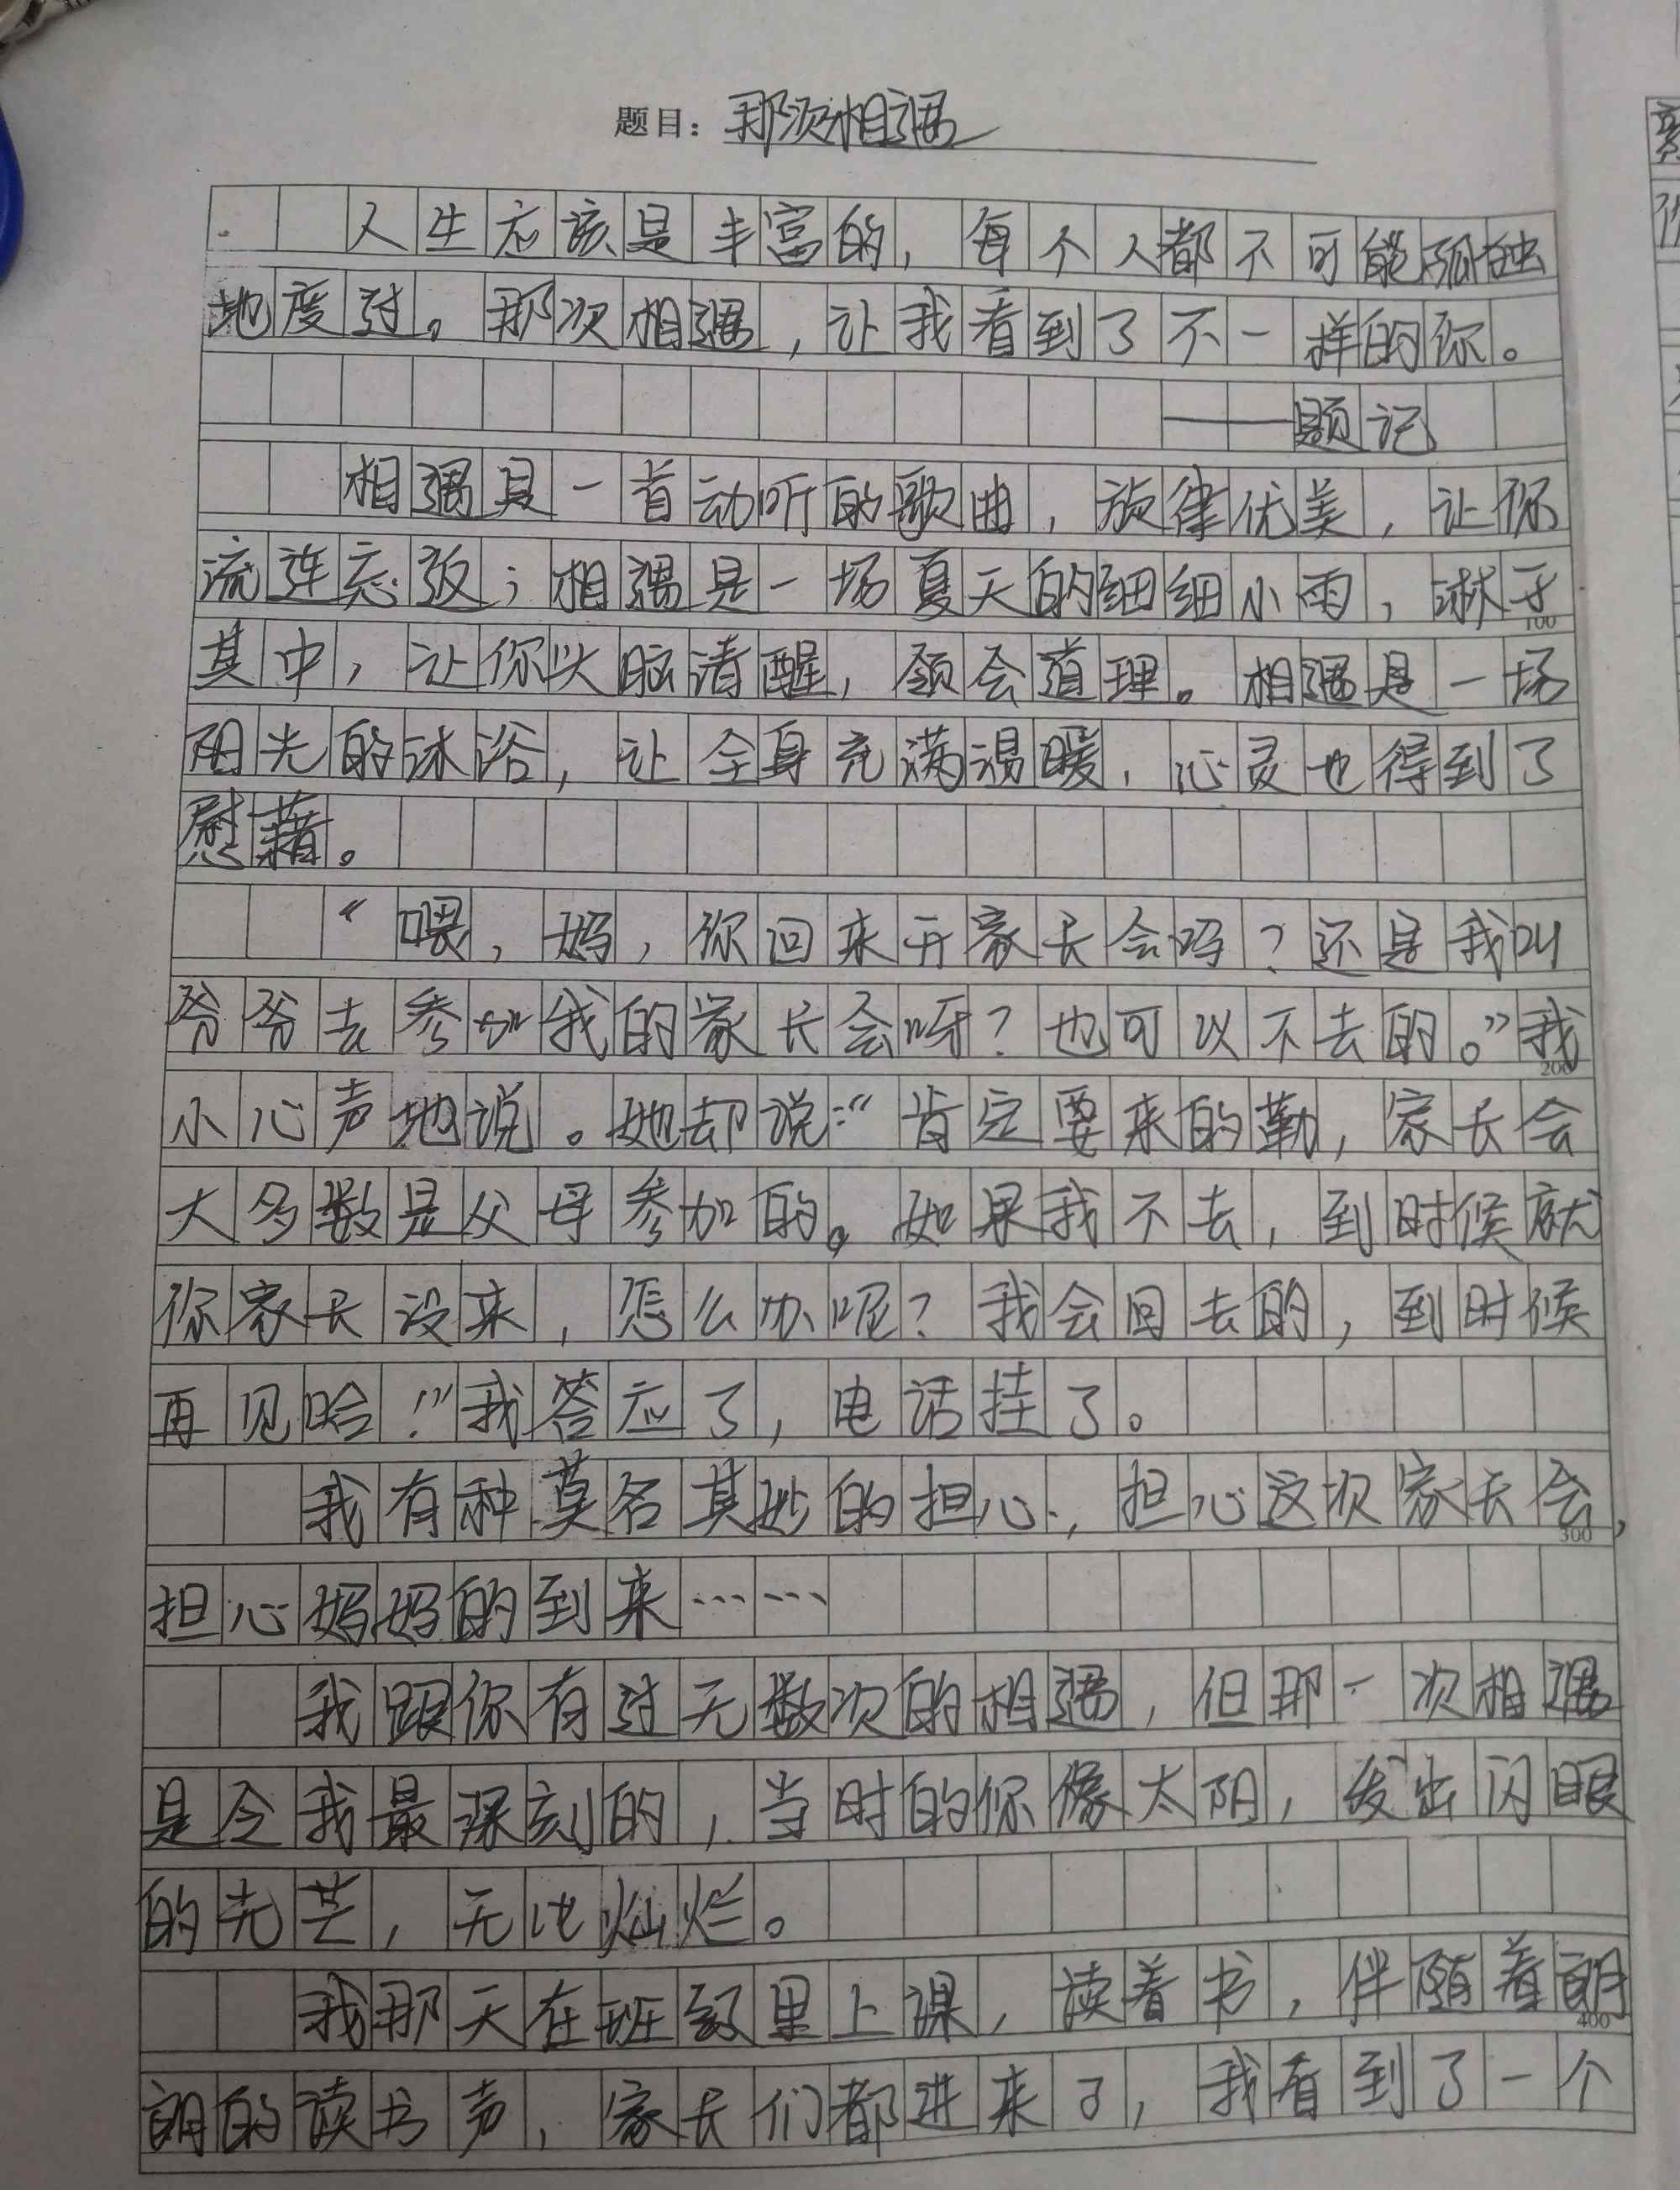 题目：那次相遇
人生应该是丰富的，每个人都不可能孤独
地度过。那次相遇，让我看到了不一样的你。
——题记
相遇是一首动听的歌曲，旋律优美，让你
流连忘返；相遇是一场夏天的细细小雨，淋于
其中，让你头脑清醒，领会道理。相遇是一场
阳光的沐浴，让全身充满温暖，心灵也得到了
慰藉。
“喂，妈，你回来开家长会吗？还是我叫
爷爷去参加我的家长会呀？也可以不去的。”我
小心声地说。她却说：“肯定要来的勤，家长会
大多数是父母参加的。如果我不去，到时候就
你家长没来，怎么办呢？我会回去的，到时候
再见哈！”我答应了，电话挂了。
我有种莫名其妙的担心，担心这次家长会，
担心妈妈的到来……
我跟你有过无数次的相遇，但那一次相遇
是令我最深刻的，当时的你像太阳，发出闪眼
的光芒，无比灿烂。
我那天在班级里上课，读着书，伴随着朗
朗的读书声，家长们都进来了，我看到了一个
100
200
300
400